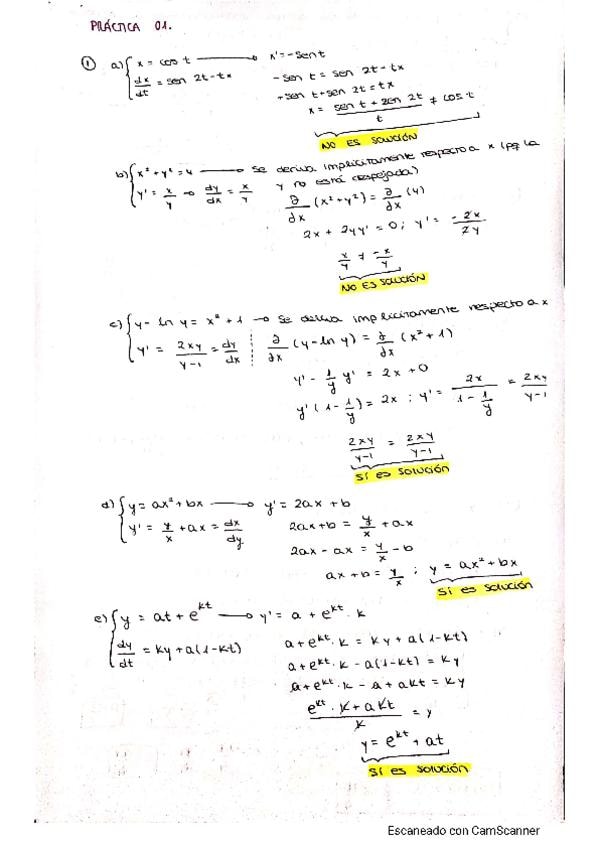 PRÁCTICA 01.
① a) { x = cos t → x' = -sen t
dx/dt = sen 2t - tx   -sen t = sen 2t - tx
+sen t + sen 2t = tx
x = (sen t + sen 2t)/t ≠ cos t
NO ES SOLUCIÓN
b) { x² + y² = 4 → se deriva implícitamente respecto a x (pq la
y' = x/y → dy/dx = x/y   y no está despejada)
∂/∂x (x² + y²) = ∂/∂x (4)
2x + 2yy' = 0 ; y' = -2x/2y
x/y ≠ -x/y
NO ES SOLUCIÓN
c) { y - ln y = x² + 1 → se deriva implícitamente respecto a x
y' = 2xy/(y-1) = dy/dx   ∂/∂x (y - ln y) = ∂/∂x (x² + 1)
y' - 1/y y' = 2x + 0
y' (1 - 1/y) = 2x ; y' = 2x/(1 - 1/y) = 2xy/(y-1)
2xy/(y-1) = 2xy/(y-1)
SÍ es solución
d) { y = ax² + bx → y' = 2ax + b
y' = y/x + ax = dx/dy   2ax + b = y/x + ax
2ax - ax = y/x - b
ax + b = y/x ; y = ax² + bx
SÍ es solución
e) { y = at + e^kt → y' = a + e^kt · k
dy/dt = ky + a(1-kt)   a + e^kt · k = ky + a(1-kt)
a + e^kt · k - a(1-kt) = ky
a + e^kt · k - a + akt = ky
(e^kt · k + akt)/k = y
y = e^kt + at
SÍ es solución
Escaneado con CamScanner